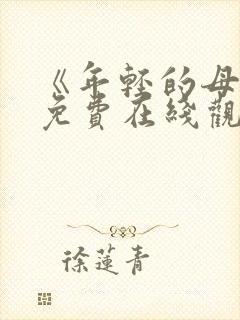 《年轻的母
免費在綫觀
徐蓮青